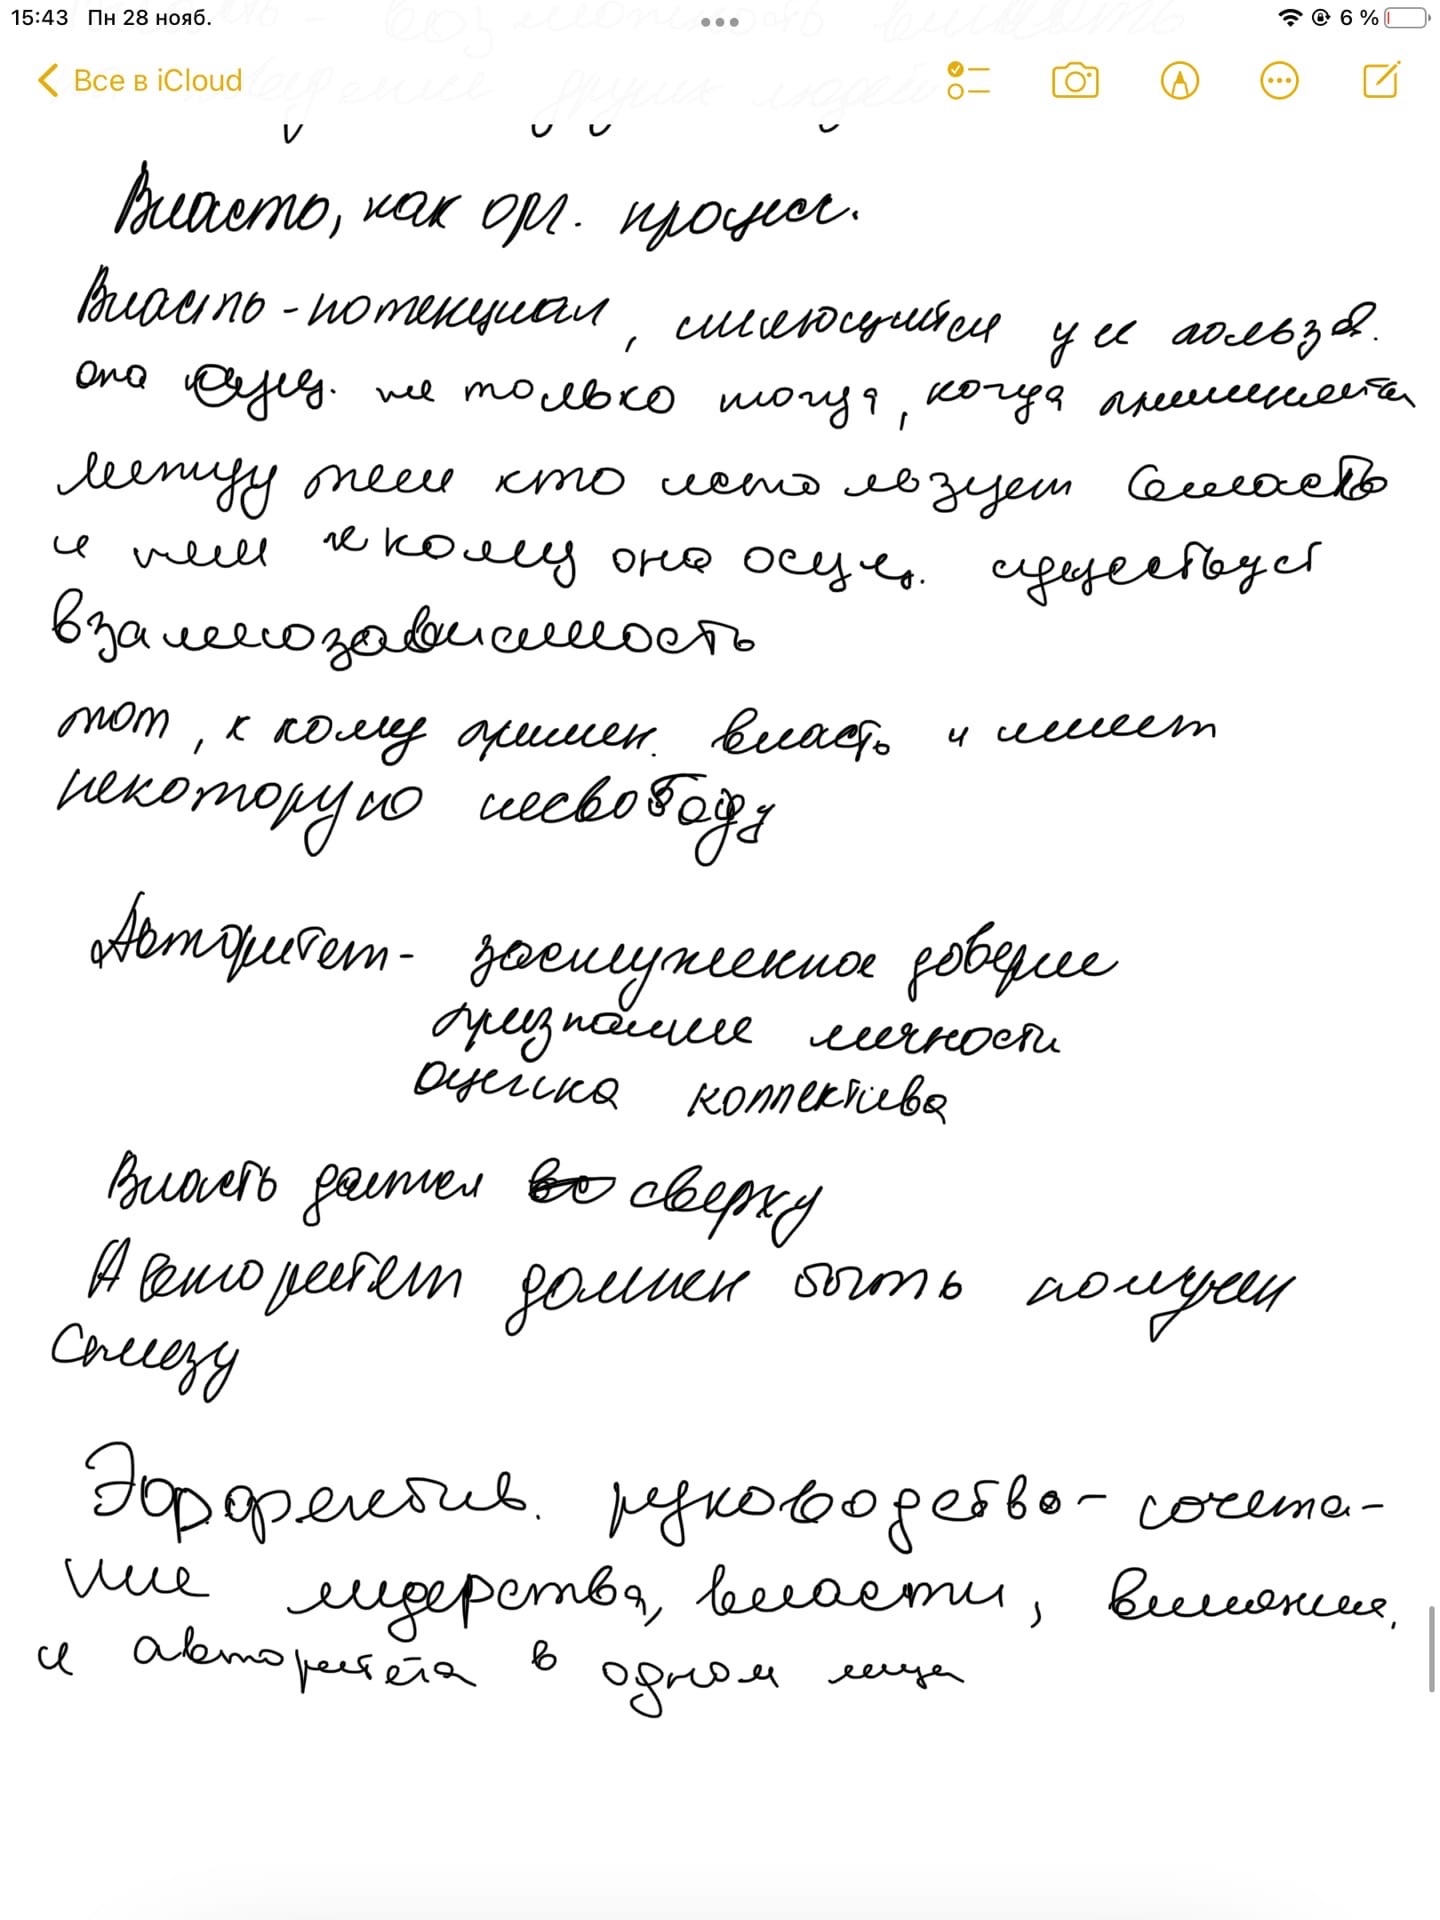 15:43 Пн 28 нояб. 6 %
Все в iCloud
Власть, как орг. процесс.
Власть - потенциал, имеющийся у её пользов.
она сущ. не только тогда, когда применяется
между тем кто использует власть
и тем к кому она осущ. существует
взаимозависимость
тот, к кому примен. власть имеет
некоторую несвободу
Авторитет - заслуженное доверие
признание личности
оценка коллектива
Власть дается сверху
Авторитет должен быть получен
снизу
Эффектив. руководство - сочета-
ние лидерства, власти, влияния,
и авторитета в одном лице